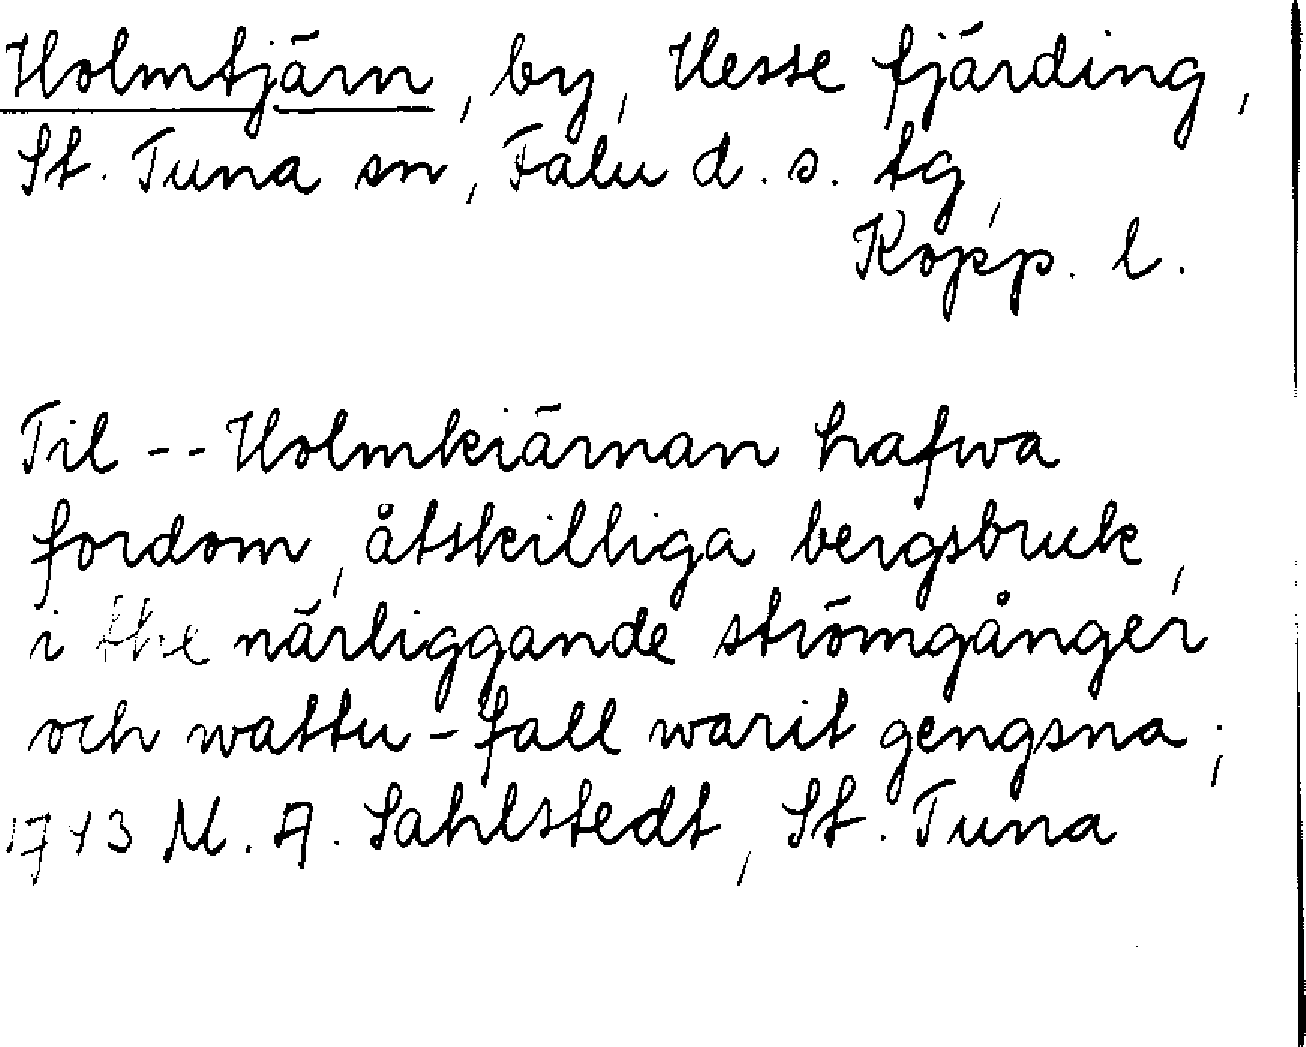 Holmtjärn, by, Hesse fjärding,
St. Tuna sn, Falu d. s. tg,
Kopp. l.
Til -- Holmkiärnan hafwa
fordom, åtskilliga bergsbruk,
i the närliggande strömgånger
och wattu-fall warit gengsna;
1743 M. A. Sahlstedt, St. Tuna